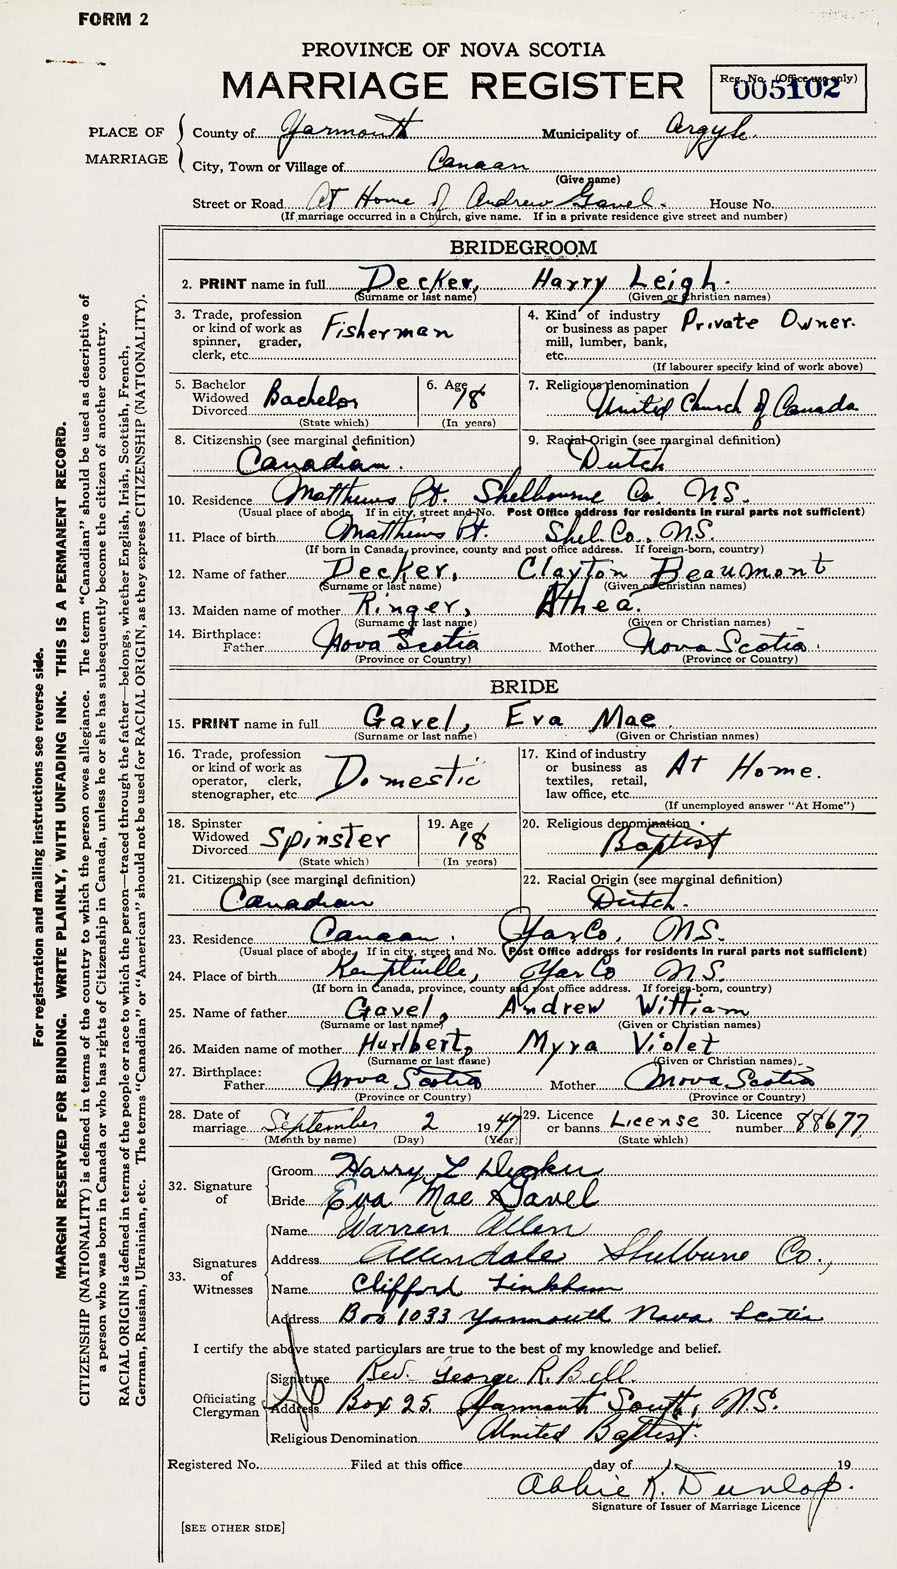 FORM 2
PROVINCE OF NOVA SCOTIA
MARRIAGE REGISTER
Reg. No. (Office use only)
005102
PLACE OF MARRIAGE
County of Yarmouth Municipality of Argyle
City, Town or Village of Canaan
(Give name)
Street or Road At Home of Andrew Gavel. House No.
(If marriage occurred in a Church, give name. If in a private residence give street and number)
BRIDEGROOM
2. PRINT name in full Decker, Harry Leigh.
(Surname or last name) (Given or Christian names)
3. Trade, profession or kind of work as spinner, grader, clerk, etc. Fisherman
4. Kind of industry or business as paper mill, lumber, bank, etc. Private Owner.
(If labourer specify kind of work above)
5. Bachelor Widowed Divorced Bachelor
(State which)
6. Age 18
(In years)
7. Religious denomination United Church of Canada
8. Citizenship (see marginal definition) Canadian.
9. Racial Origin (see marginal definition) Dutch
10. Residence Matthews Pt. Shelbourne Co. N.S.
(Usual place of abode. If in city, street and No. Post Office address for residents in rural parts not sufficient)
11. Place of birth Matthews Pt. Shel. Co., N.S.
(If born in Canada, province, county and post office address. If foreign-born, country)
12. Name of father Decker, Clayton Beaumont
(Surname or last name) (Given or Christian names)
13. Maiden name of mother Ringer, Athea.
(Surname or last name) (Given or Christian names)
14. Birthplace: Father Nova Scotia Mother Nova Scotia.
(Province or Country) (Province or Country)
BRIDE
15. PRINT name in full Gavel, Eva Mae
(Surname or last name) (Given or Christian names)
16. Trade, profession or kind of work as operator, clerk, stenographer, etc. Domestic
17. Kind of industry or business as textiles, retail, law office, etc. At Home.
(If unemployed answer "At Home")
18. Spinster Widowed Divorced Spinster
(State which)
19. Age 18
(In years)
20. Religious denomination Baptist
21. Citizenship (see marginal definition) Canadian
22. Racial Origin (see marginal definition) Dutch.
23. Residence Canaan. Yar Co, N.S.
(Usual place of abode. If in city, street and No. Post Office address for residents in rural parts not sufficient)
24. Place of birth Kemptville, Yar Co N.S.
(If born in Canada, province, county and post office address. If foreign-born, country)
25. Name of father Gavel, Andrew William
(Surname or last name) (Given or Christian names)
26. Maiden name of mother Hurlbert, Myra Violet
(Surname or last name) (Given or Christian names)
27. Birthplace: Father Nova Scotia Mother Nova Scotia
(Province or Country) (Province or Country)
28. Date of marriage September 2 1947
(Month by name) (Day) (Year)
29. Licence or banns License
(State which)
30. Licence number 88677
32. Signature of
Groom Harry L Decker
Bride Eva Mae Gavel
33. Signatures of Witnesses
Name Warren Allen
Address Allendale Shelburne Co.,
Name Clifford Linkham
Address Box 1033 Yarmouth Nova Scotia
I certify the above stated particulars are true to the best of my knowledge and belief.
Officiating Clergyman
Signature Rev. George R. Bell.
Address Box 25 Yarmouth South, N.S.
Religious Denomination United Baptist.
Registered No. Filed at this office day of 19
Abbie K. Dunlop.
Signature of Issuer of Marriage Licence
[SEE OTHER SIDE]
For registration and mailing instructions see reverse side.
MARGIN RESERVED FOR BINDING. WRITE PLAINLY, WITH UNFADING INK. THIS IS A PERMANENT RECORD.
CITIZENSHIP (NATIONALITY) is defined in terms of the country to which the person owes allegiance. The term "Canadian" should be used as descriptive of
a person who was born in Canada or who has rights of Citizenship in Canada, unless he or she has subsequently become the citizen of another country.
RACIAL ORIGIN is defined in terms of the people or race to which the person—traced through the father—belongs, whether English, Irish, Scottish, French,
German, Russian, Ukrainian, etc. The terms "Canadian" or "American" should not be used for RACIAL ORIGIN, as they express CITIZENSHIP (NATIONALITY).